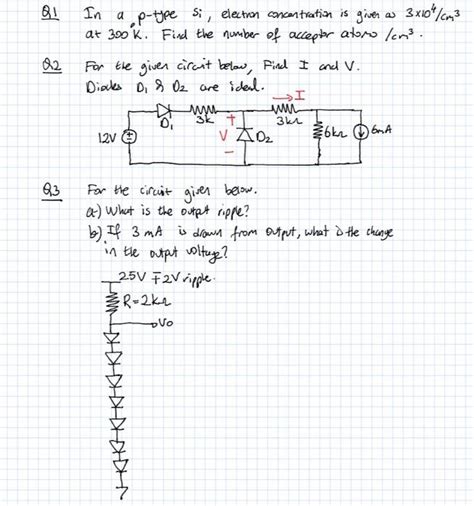 Q1 In a p-type Si, electron concentration is given as 3x10⁴/cm³
at 300 K. Find the number of acceptor atoms /cm³.
Q2 For the given circuit below, Find I and V.
Diodes D1 & D2 are ideal.
I
D1 3k + 3kΩ
12V V D2 6kΩ 6mA
-
Q3 For the circuit given below.
a) What is the output ripple?
b) If 3 mA is drawn from output, what is the change
in the output voltage?
25V ∓2V ripple.
R=2kΩ
Vo